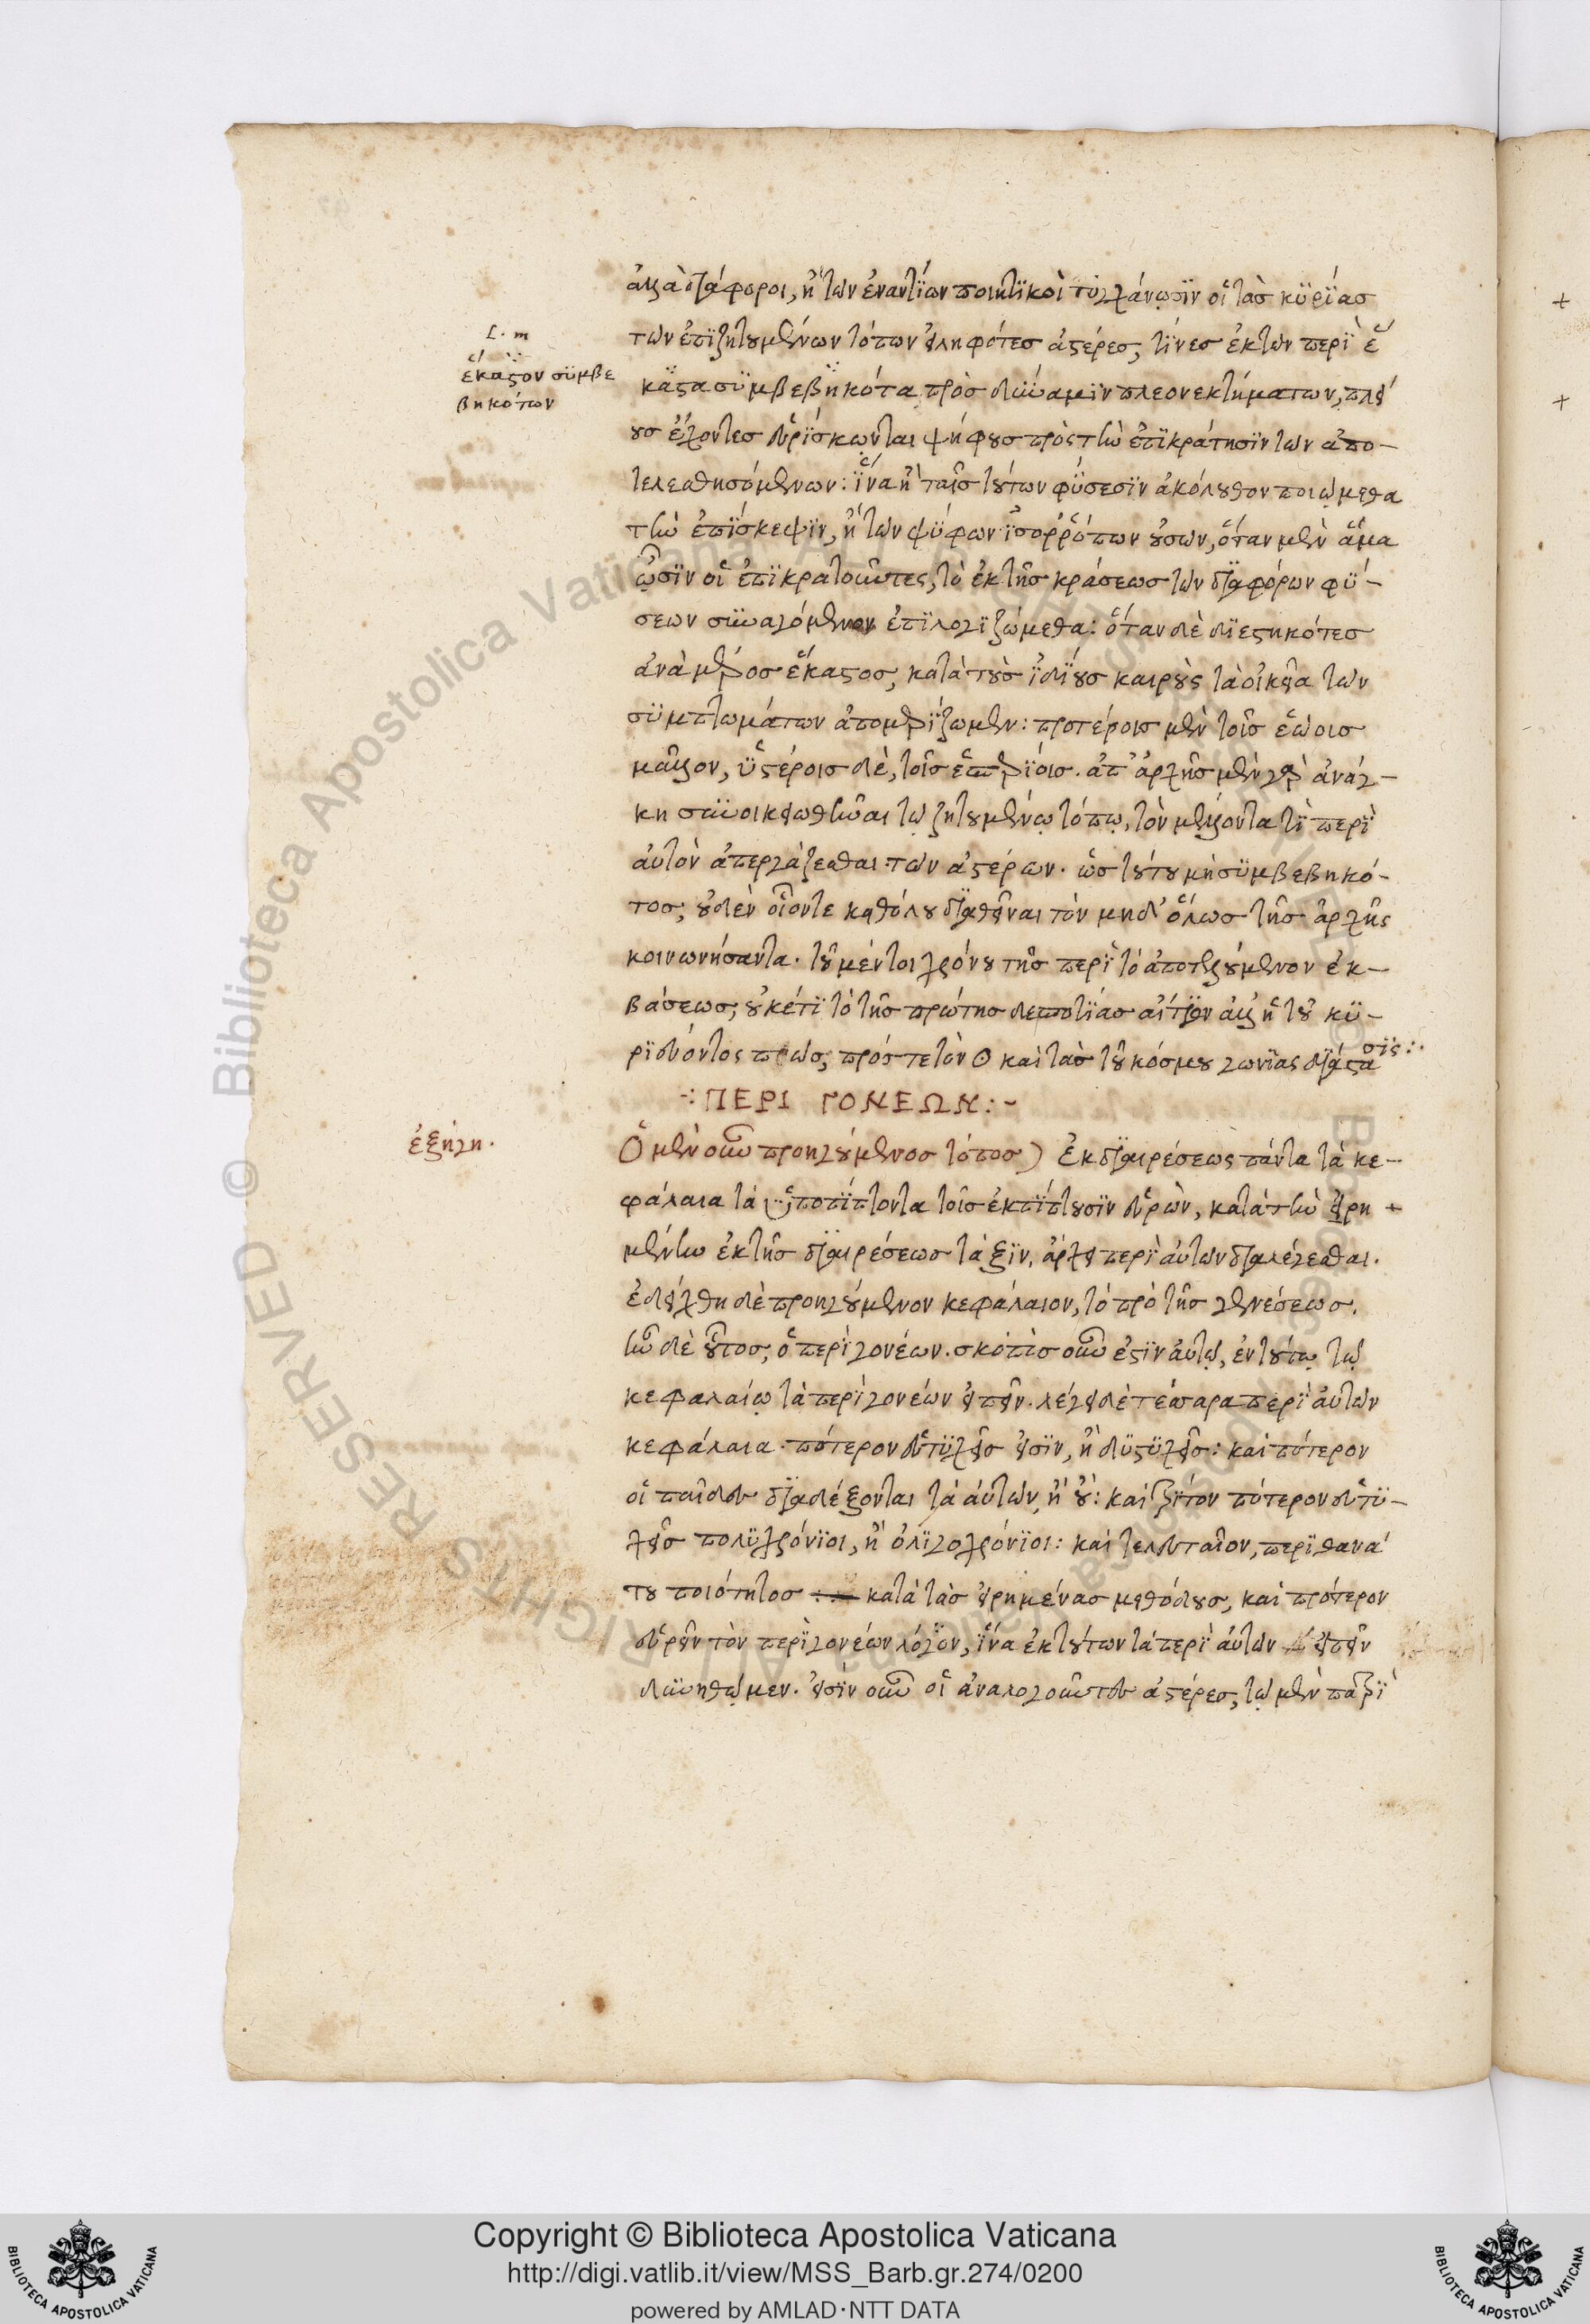 ἀλλὰ διάφοροι, ἢ τῶν ἐναντίων ποιητικοὶ τυγχάνωσιν οἱ τὰς κυρίας
τῶν ἐπιζητουμένων τόπων εἰληφότες ἀστέρες, τίνες ἐκ τῶν περὶ ἕ
L. m
ἕκαστον συμβε
βηκότων
καστα συμβεβηκότα πρὸς δύναμιν πλεονεκτημάτων, πλεί
ους ἔχοντες εὑρίσκωνται ψήφους πρὸς τὴν ἐπικράτησιν τῶν ἀπο-
τελεσθησομένων: ἵνα ἢ ταῖς τούτων φύσεσιν ἀκόλουθον ποιώμεθα
τὴν ἐπίσκεψιν, ἢ τῶν ψύφων ἰσορρόπων οὐσῶν, ὅταν μὲν ἅμα
ὦσιν οἱ ἐπικρατοῦντες, τὸ ἐκ τῆς κράσεως τῶν διαφόρων φύ-
σεων συναγόμενον ἐπιλογιζώμεθα: ὅταν δὲ διεστηκότες
ἀνὰ μέρος ἕκαστος, κατὰ τοὺς ἰδίους καιροὺς τὰ οἰκεῖα τῶν
συμπτωμάτων ἀπομερίζωμεν: προτέροις μὲν τοῖς ἑῴοις
μᾶλλον, ὑστέροις δὲ, τοῖς ἑσπερίοις. ἀπ' ἀρχῆς μὲν γὰρ ἀνάγ-
κη συνοικειωθῆναι τῷ ζητουμένῳ τόπῳ, τὸν μέλλοντα τὶ περὶ
αὐτὸν ἀπεργάζεσθαι τῶν ἀστέρων. ὡς τούτου μὴ συμβεβηκό-
τος, οὐδὲν οἷόντε καθόλου διαθεῖναι τὸν μηδ' ὅλως τῆς ἀρχῆς
κοινωνήσαντα. τοῦ μέντοι χρόνου τῆς περὶ τὸ ἀποτελούμενον ἐκ-
βάσεως, οὐκέτι τὸ τῆς πρώτης δεσποτίας αἴτιον ἀλλ' ἡ τοῦ κυ-
ριεύοντος πως, πρός τε τὸν ☉ καὶ τὰς τοῦ κόσμου γωνίας διάστα
σις:.
-:ΠΕΡΙ ΓΟΝΕΩΝ:-
ἐξήγη.
Ὁ μὲν οὖν προηγούμενος τόπος) Ἐκ διαιρέσεως πάντα τὰ κε-
φάλαια τὰ ὑποπίπτοντα τοῖς ἐκπίπτουσιν εὑρὼν, κατὰ τὴν εἰρη +
μένην ἐκ τῆς διαιρέσεως τάξιν, ἄρχει περὶ αὐτῶν διαλέγεσθαι.
ἐδείχθη δὲ προηγούμενον κεφάλαιον, τὸ πρὸ τῆς γενέσεως.
ἦν δὲ οὗτος, ὁ περὶ γονέων. σκόπὶς οὖν ἐστὶν αὐτῷ, ἐν τούτῳ τῷ
κεφαλαίῳ τὰ περὶ γονέων εἰπεῖν. λέγει δὲ τέσσαρα περὶ αὐτῶν
κεφάλαια. πότερον εὐτυχεῖς εἰσὶν, ἢ δυστυχεῖς: καὶ πότερον
οἱ παῖδες διαδέξονται τὰ αὐτῶν, ἢ οὔ: καὶ τρίτον πότερον εὐτυ-
χεῖς πολυχρόνιοι, ἢ ὀλιγοχρόνιοι: καὶ τελευταῖον, περὶ θανά
του ποιότητος κατὰ τὰς εἰρημένας μεθόδους, καὶ πρότερον
εὑρεῖν τὸν περὶ γονέων λόγον, ἵνα ἐκ τούτων τὰ περὶ αὐτῶν εἰπεῖν
δυνηθῶμεν. εἰσὶν οὖν οἱ ἀναλογοῦντες ἀστέρες, τῷ μὲν πατρὶ
+
+
Copyright © Biblioteca Apostolica Vaticana
http://digi.vatlib.it/view/MSS_Barb.gr.274/0200
powered by AMLAD·NTT DATA